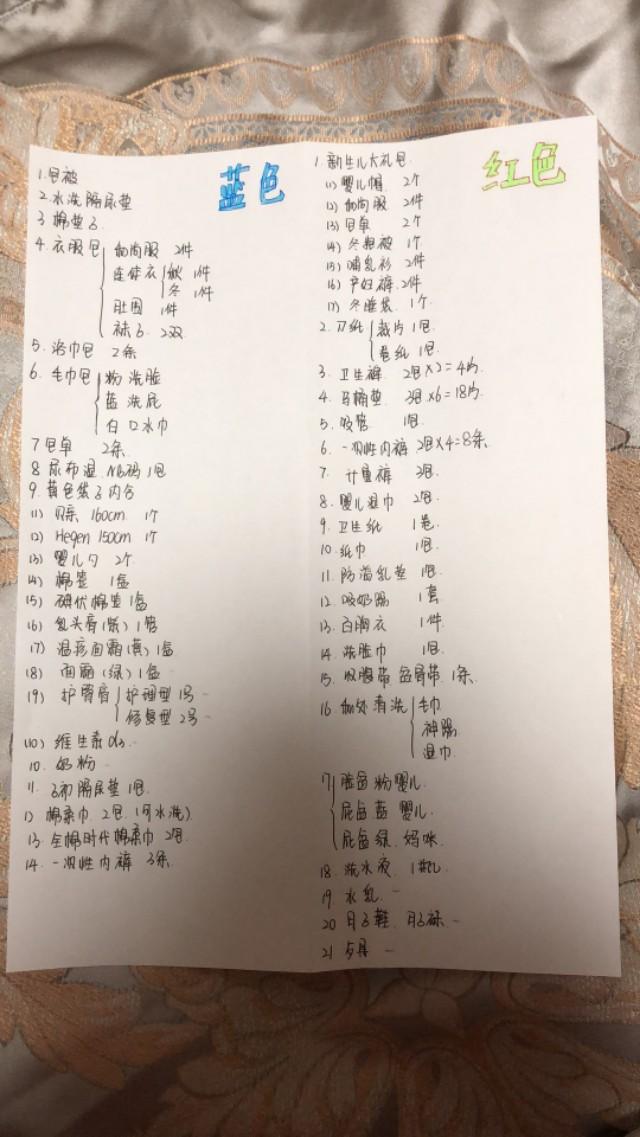 蓝色
1.包被
2.水洗隔尿垫
3.棉垫子
4.衣服包 和尚服 2件
连体衣 秋 1件
冬 1件
肚围 1件
袜子 2双
5.浴巾包 2条
6.毛巾包 粉 洗脸
蓝 洗屁
白 口水巾
7包单 2条
8尿布湿 NB码 1包
9.黄色袋子内含
(1) 贝亲 160cm 1个
(2) Hegen 150cm 1个
(3) 婴儿勺 2个
(4) 棉签 1盒
(5) 碘伏棉签 1盒
(6) 乳头膏(紫) 1管
(7) 湿疹面霜(黄) 1盒
(8) 面霜(绿) 1盒
(9) 护臀膏 护理型 1号
修复型 2号
(10) 维生素d3
10. 奶粉
11. 子初隔尿垫 1包
12 棉柔巾 2包 (可水洗)
13. 全棉时代棉柔巾 2包
14. 一次性内裤 3条
红色
1.新生儿大礼包
(1) 婴儿帽 2个
(2) 和尚服 2件
(3) 包单 2个
(4) 冬抱被 1个
(5) 哺乳衫 2件
(6) 产妇裤 2件
(7) 冬睡袋 1个
2.刀纸 裁片 1包
卷纸 1包
3. 卫生裤 2包×2=4片
4. 马桶垫 3包×6=18片
5. 吸管 1包
6. 一次性内裤 2包×4=8条
7. 计量裤 3包
8. 婴儿湿巾 2包
9. 卫生纸 1卷
10. 纸巾 1包
11. 防溢乳垫 1包
12. 吸奶器 1套
13. 白胸衣 1件
14. 洗脸巾 1包
15. 收腹带 盆骨带 1条
16. 私处清洗 毛巾
神器
湿巾
17 脸盆 粉 婴儿
屁盆 蓝 婴儿
屁盆 绿 妈咪
18. 洗水液 1瓶
19. 水乳
20 月子鞋 月子袜
21 牙具